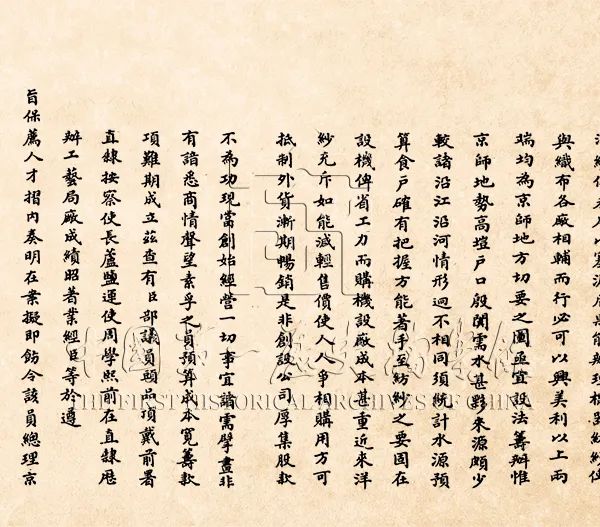 與織布各廠相輔而行必可以興美利以上兩
端均為京師地方切要之圖亟宜設法籌辦惟
京師地勢高塏戶口殷闐需水甚夥來源頗少
較諸沿江沿河情形迥不相同須統計水源預
算食戶確有把握方能著手至紡紗之要固在
設機俾省工力而購機設廠成本甚重近來洋
紗充斥如能減輕售價使人人爭相購用方可
抵制外貨漸期暢銷是非創設公司厚集股款
不為功現當創始經營一切事宜諸需擘畫非
有諳悉商情聲望素孚之員預算成本寬籌款
項難期成立茲查有臣部議員頭品頂戴前署
直隸按察使長蘆鹽運使周學熙前在直隸歷
辦工藝局廠成績昭著業經臣等於遵
旨保薦人才摺內奏明在案擬即飭令該員總理京
中国第一历史档案馆
THE FIRST HISTORICAL ARCHIVES OF CHINA